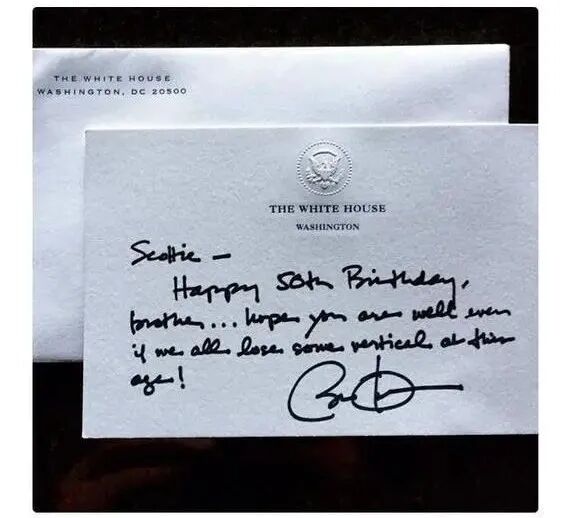 THE WHITE HOUSE
WASHINGTON, DC 20500
THE WHITE HOUSE
WASHINGTON
Scottie —
Happy 50th Birthday,
brother... hope you are well even
if we all lose some vertical at this
age!